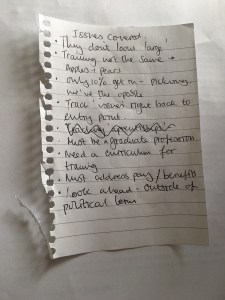 Issues covered
• They don't look 'large'
• Training not the same →
Apples + pears
• Only 10% get in -
we're the opposite
• Track issues right back to
entry point
• Must be a graduate profession
• Need a curriculum for
training
• Must address pay / benefits
• Look ahead - outside of
political term